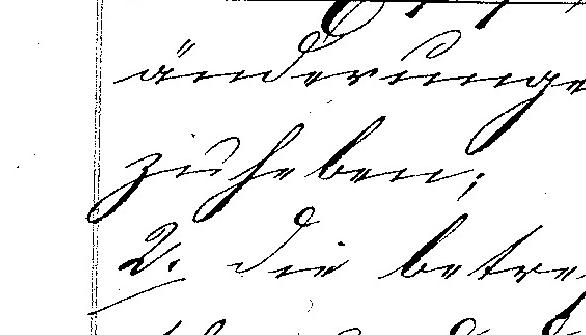 änderunge
zuheben;
2. die betre